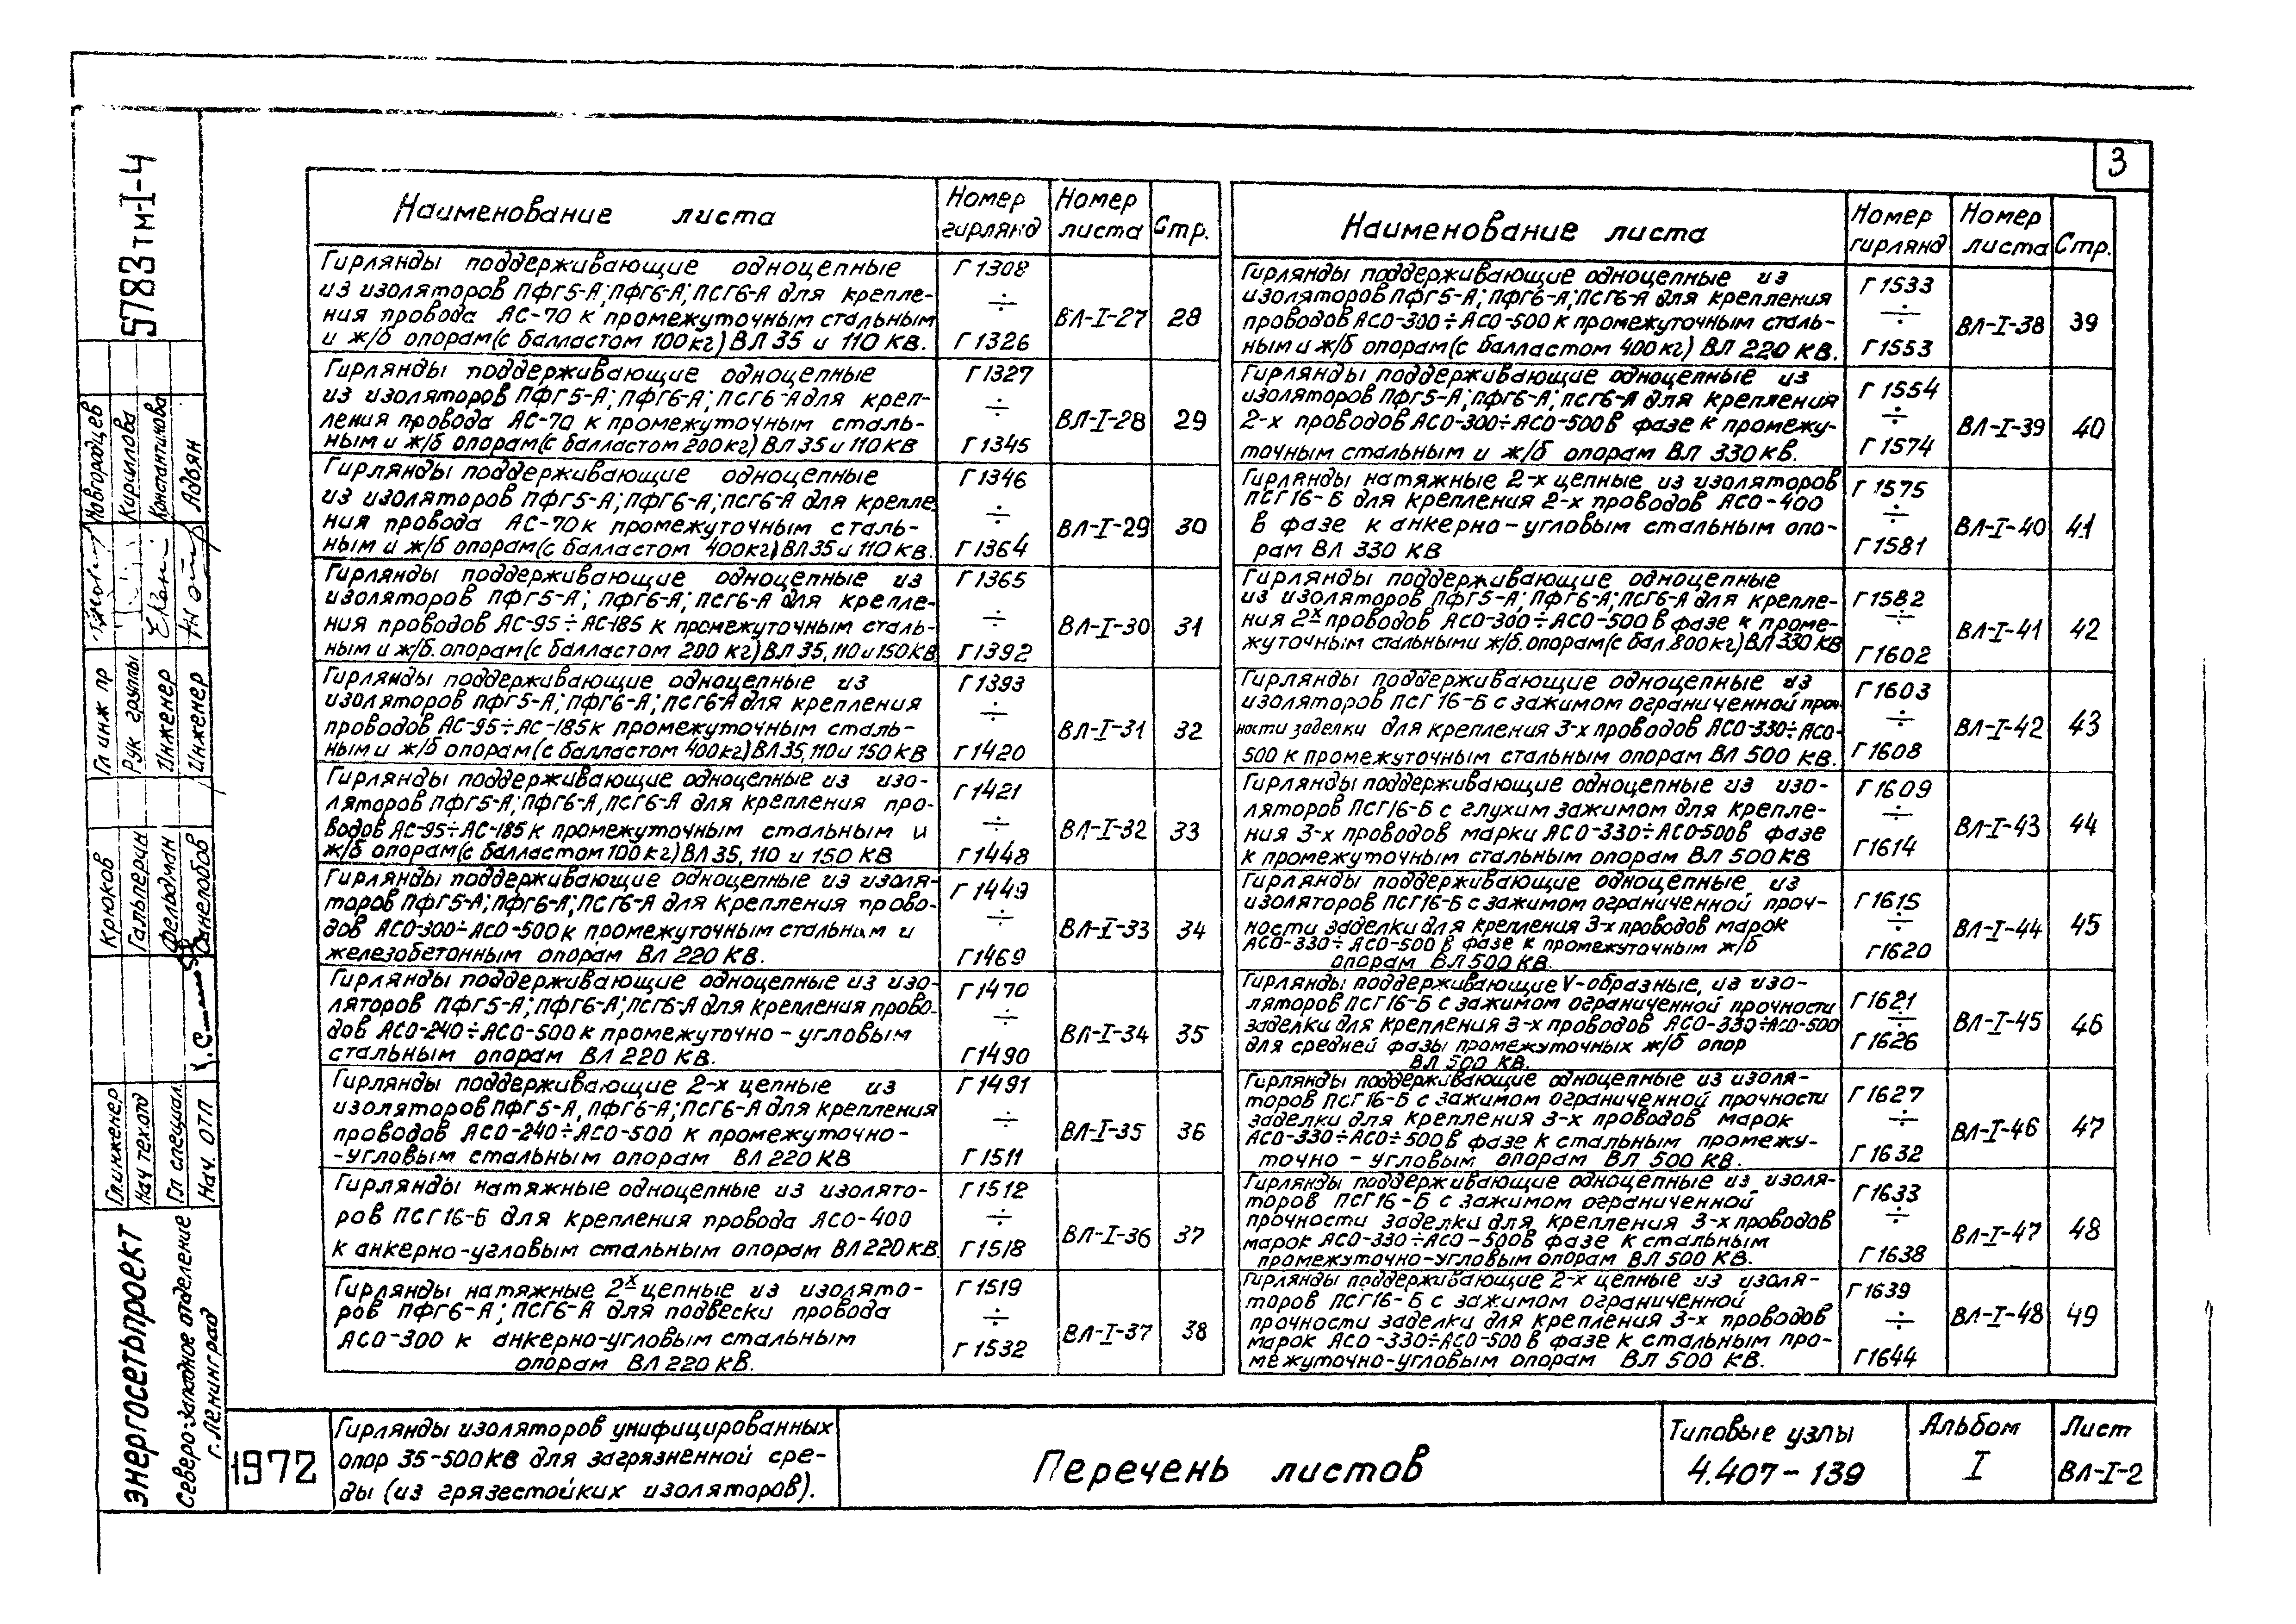 3
Наименование листа
Номер гирлянд
Номер листа
Стр.
Гирлянды поддерживающие одноцепные
из изоляторов ПФГ5-А; ПФГ6-А; ПСГ6-А для крепле-
ния провода АС-70 к промежуточным стальным
и ж/б опорам (с балластом 100кг) ВЛ 35 и 110 кв.
Г1308 ÷ Г1326
ВЛ-I-27
28
Гирлянды поддерживающие одноцепные
из изоляторов ПФГ5-А; ПФГ6-А; ПСГ6-А для креп-
ления провода АС-70 к промежуточным сталь-
ным и ж/б опорам (с балластом 200кг) ВЛ 35 и 110 кв
Г1327 ÷ Г1345
ВЛ-I-28
29
Гирлянды поддерживающие одноцепные
из изоляторов ПФГ5-А; ПФГ6-А; ПСГ6-А для крепле
ния провода АС-70 к промежуточным сталь-
ным и ж/б опорам (с балластом 400кг) ВЛ 35 и 110 кв.
Г1346 ÷ Г1364
ВЛ-I-29
30
Гирлянды поддерживающие одноцепные из
изоляторов ПФГ5-А; ПФГ6-А; ПСГ6-А для крепле-
ния проводов АС-95÷АС-185 к промежуточным сталь-
ным и ж/б. опорам (с балластом 200 кг) ВЛ 35, 110 и 150 кв
Г1365 ÷ Г1392
ВЛ-I-30
31
Гирлянды поддерживающие одноцепные из
изоляторов ПФГ5-А; ПФГ6-А; ПСГ6-А для крепления
проводов АС-95÷АС-185 к промежуточным сталь-
ным и ж/б опорам (с балластом 400кг) ВЛ 35, 110 и 150 кв
Г1393 ÷ Г1420
ВЛ-I-31
32
Гирлянды поддерживающие одноцепные из изо-
ляторов ПФГ5-А; ПФГ6-А, ПСГ6-А для крепления про-
водов АС-95÷АС-185 к промежуточным стальным и
ж/б опорам (с балластом 100кг) ВЛ 35, 110 и 150 кв
Г1421 ÷ Г1448
ВЛ-I-32
33
Гирлянды поддерживающие одноцепные из изоля-
торов ПФГ5-А; ПФГ6-А; ПСГ6-А для крепления прово-
дов АСО-300÷АСО-500 к промежуточным стальным и
железобетонным опорам ВЛ 220 кв.
Г1449 ÷ Г1469
ВЛ-I-33
34
Гирлянды поддерживающие одноцепные из изо-
ляторов ПФГ5-А; ПФГ6-А; ПСГ6-А для крепления прово-
дов АСО-240÷АСО-500 к промежуточно-угловым
стальным опорам ВЛ 220 кв.
Г1470 ÷ Г1490
ВЛ-I-34
35
Гирлянды поддерживающие 2-х цепные из
изоляторов ПФГ5-А, ПФГ6-А; ПСГ6-А для крепления
проводов АСО-240÷АСО-500 к промежуточно-
-угловым стальным опорам ВЛ 220 кв
Г1491 ÷ Г1511
ВЛ-I-35
36
Гирлянды натяжные одноцепные из изолято-
ров ПСГ16-Б для крепления провода АСО-400
к анкерно-угловым стальным опорам ВЛ 220 кв.
Г1512 ÷ Г1518
ВЛ-I-36
37
Гирлянды натяжные 2х цепные из изолято-
ров ПФГ6-А; ПСГ6-А для подвески провода
АСО-300 к анкерно-угловым стальным
опорам ВЛ 220 кв.
Г1519 ÷ Г1532
ВЛ-I-37
38
Наименование листа
Номер гирлянд
Номер листа
Стр.
Гирлянды поддерживающие одноцепные из
изоляторов ПФГ5-А; ПФГ6-А; ПСГ6-А для крепления
проводов АСО-300÷АСО-500 к промежуточным сталь-
ным и ж/б опорам (с балластом 400кг) ВЛ 220 кв.
Г1533 ÷ Г1553
ВЛ-I-38
39
Гирлянды поддерживающие одноцепные из
изоляторов ПФГ5-А; ПФГ6-А; ПСГ6-А для крепления
2-х проводов АСО-300÷АСО-500 в фазе к промежу-
точным стальным и ж/б опорам ВЛ 330 кв.
Г1554 ÷ Г1574
ВЛ-I-39
40
Гирлянды натяжные 2-х цепные из изоляторов
ПСГ16-Б для крепления 2-х проводов АСО-400
в фазе к анкерно-угловым стальным опо-
рам ВЛ 330 кв
Г1575 ÷ Г1581
ВЛ-I-40
41
Гирлянды поддерживающие одноцепные
из изоляторов ПФГ5-А; ПФГ6-А; ПСГ6-А для крепле-
ния 2х проводов АСО-300÷АСО-500 в фазе к проме-
жуточным стальными ж/б. опорам (с бал. 800кг) ВЛ 330 кв
Г1582 ÷ Г1602
ВЛ-I-41
42
Гирлянды поддерживающие одноцепные из
изоляторов ПСГ16-Б с зажимом ограниченной проч
ности заделки для крепления 3-х проводов АСО-330÷АСО-
500 к промежуточным стальным опорам ВЛ 500 кв.
Г1603 ÷ Г1608
ВЛ-I-42
43
Гирлянды поддерживающие одноцепные из изо-
ляторов ПСГ16-Б с глухим зажимом для крепле-
ния 3-х проводов марки АСО-330÷АСО-500 в фазе
к промежуточным стальным опорам ВЛ 500 кв
Г1609 ÷ Г1614
ВЛ-I-43
44
Гирлянды поддерживающие одноцепные из
изоляторов ПСГ16-Б с зажимом ограниченной проч-
ности заделки для крепления 3-х проводов марок
АСО-330÷АСО-500 в фазе к промежуточным ж/б
опорам ВЛ 500 кв.
Г1615 ÷ Г1620
ВЛ-I-44
45
Гирлянды поддерживающие V-образные, из изо-
ляторов ПСГ16-Б с зажимом ограниченной прочности
заделки для крепления 3-х проводов АСО-330÷АСО-500
для средней фазы промежуточных ж/б опор
ВЛ 500 кв.
Г1621 ÷ Г1626
ВЛ-I-45
46
Гирлянды поддерживающие одноцепные из изоля-
торов ПСГ16-Б с зажимом ограниченной прочности
заделки для крепления 3-х проводов марок
АСО-330÷АСО÷500 в фазе к стальным промежу-
точно-угловым опорам ВЛ 500 кв.
Г1627 ÷ Г1632
ВЛ-I-46
47
Гирлянды поддерживающие одноцепные из изоля-
торов ПСГ16-Б с зажимом ограниченной
прочности заделки для крепления 3-х проводов
марок АСО-330÷АСО-500 в фазе к стальным
промежуточно-угловым опорам ВЛ 500 кв.
Г1633 ÷ Г1638
ВЛ-I-47
48
Гирлянды поддерживающие 2-х цепные из изоля-
торов ПСГ16-Б с зажимом ограниченной
прочности заделки для крепления 3-х проводов
марок АСО-330÷АСО-500 в фазе к стальным про-
межуточно-угловым опорам ВЛ 500 кв.
Г1639 ÷ Г1644
ВЛ-I-48
49
5783тм-I-4
Гл инж пр Новгородцев
Рук группы Кирилова
Инженер Константинова
Инженер Адвян
Гл.инженер Крюков
Нач тех.отд Гальперин
Гл специал. Фельдман
Нач. ОТП
Энергосетьпроект
Северо-западное отделение
г. Ленинград
1972
Гирлянды изоляторов унифицированных
опор 35-500кв для загрязненной сре-
ды (из грязестойких изоляторов).
Перечень листов
Типовые узлы
4.407-139
Альбом
I
Лист
ВЛ-I-2